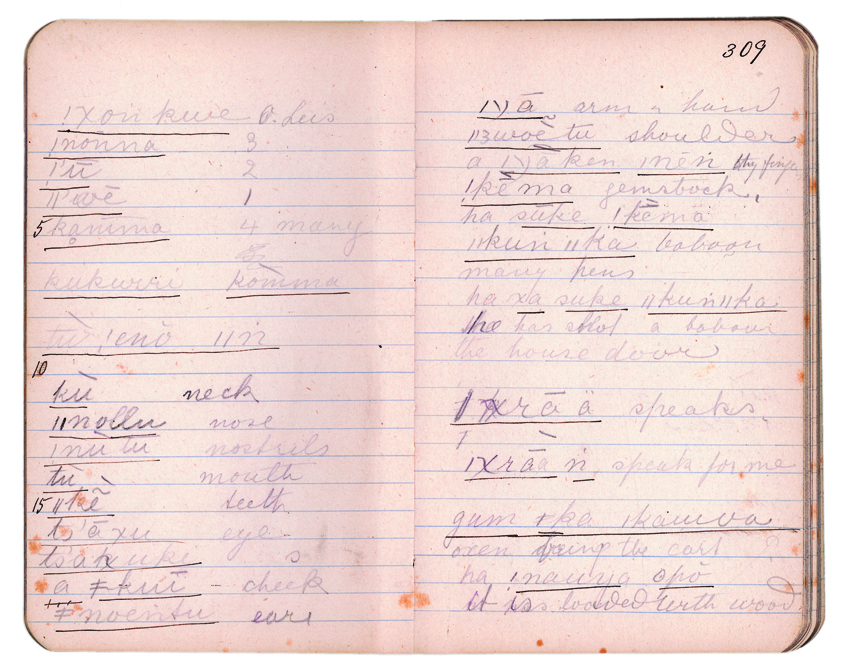 ıχon kwe O. Luis
ınonna 3
ı'ū 2
ıı'wē 1
5 kamma 4 many
5
kukurri komma
tu !enō ıı n
10
kù neck
ıınollu nose
ınu tu nostrils
tù mouth
15 ıı kẽ teeth
ts'ā xu eye
tsaxuke s
a ǂkuī – cheek
ǂnoentu ears
309
ı)ā arm & hand
ııɜwoẽ tu shoulder
a ı)āken ınēn thy finger
ıkē ma gemsbock,
ha suke ıkēmā
ııkun ııka baboon
many hens
ha xa suke ııkunııka
he has shot a baboon
the house door
ıχrā ä speaks.
ıχrāa n, speak for me
gum ǂka ıkauwa
oxen bring the cart ?
ha ınauya opō
it is loaded with wood